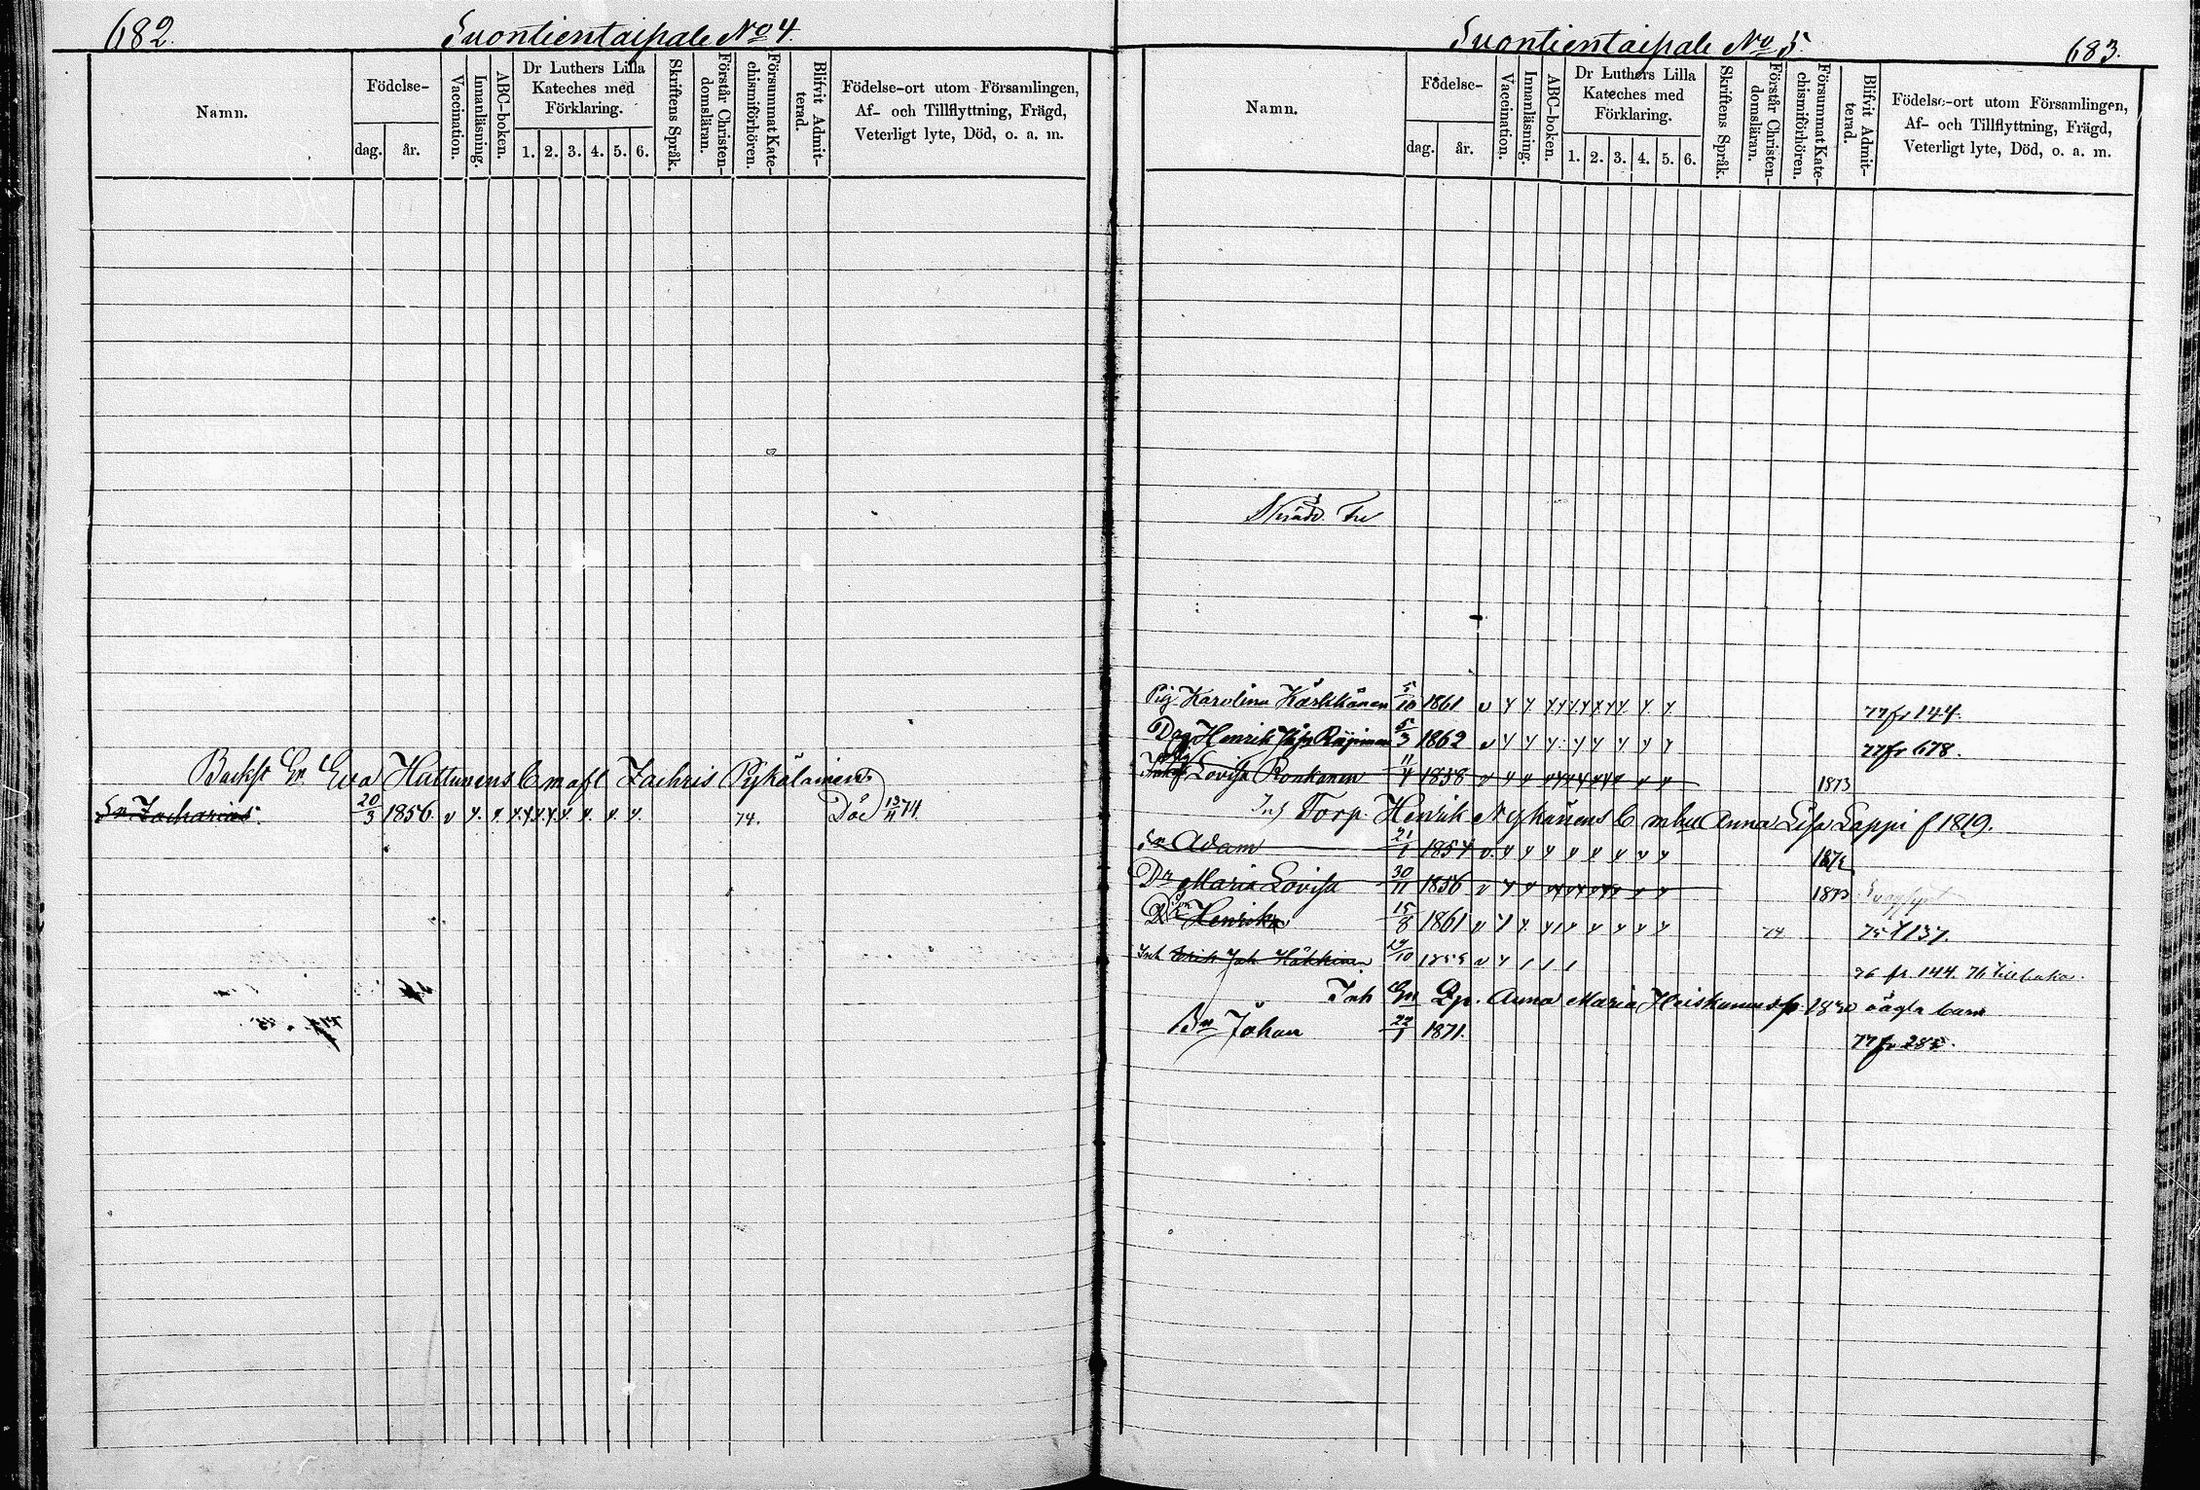 682.
Suontientaipale No 4
Namn.
Födelse-
dag.
år.
Vaccination.
Innanläsning.
ABC-boken.
Dr Luthers Lilla
Kateches med
Förklaring.
1. 2. 3. 4. 5. 6.
Skriftens Språk.
Förstår Christen-
domsläran.
Försummat Kate-
chismiförhören.
Blifvit Admit-
terad.
Födelse-ort utom Församlingen,
Af- och Tillflyttning, Frägd,
Veterligt lyte, Död, o. a. m.
Enk. Eva Huttunens b m afl Zachris Pykäläinen
Sn Zacharias. 20/3 1856 v y. y y y y y y. y. y. y. 74. Död 13/4 74.
Suontientaipale No 5.
683.
Namn.
Födelse-
dag.
år.
Vaccination.
Innanläsning.
ABC-boken.
Dr Luthers Lilla
Kateches med
Förklaring.
1. 2. 3. 4. 5. 6.
Skriftens Språk.
Förstår Christen-
domsläran.
Försummat Kate-
chismiförhören.
Blifvit Admit-
terad.
Födelse-ort utom Församlingen,
Af- och Tillflyttning, Frägd,
Veterligt lyte, Död, o. a. m.
Pig Karolina 5/10 1861 v y y y y y y y y y y 77 fr 144.
Henrik 5/3 1862 v y y y y y y y y 77 fr 678.
Lovisa Ronkanen 11/4 1858 v y y y y y y y y y y 1873
Inh Torp. Henrik Nykänens b m hu Anna Lisa Lappi f 1819.
Sn Adam 21/1 1854 v. y y y y y y y y 187
Dr Maria Lovisa 30/11 1856 v y y y y y y y y y 1873
Henrik 15/8 1861 v y y. y y y y y y y 74 75 f 137.
Inh Erik Joh Häkkinen /10 v y / / / 76 fr 144. 76 tillbaka.
Inh En Anna Maria Heiskanens oägta barn
Sn Johan 22/1 1871. 77 fr 285.